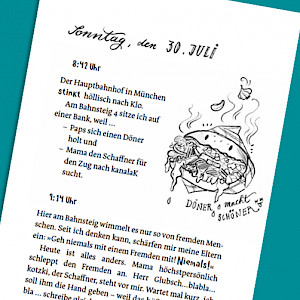 Sonntag, den 30. JULi
8:42 Uhr
Der Hauptbahnhof in München
stinkt höllisch nach Klo.
Am Bahnsteig 4 sitze ich auf
einer Bank, weil ...
– Paps sich einen Döner
holt und
– Mama den Schaffner für
den Zug nach kanalaK
sucht.
DÖNER macht
SCHÖNER
9:14 Uhr
Hier am Bahnsteig wimmelt es nur so von fremden Men-
schen. Seit ich denken kann, schärfen mir meine Eltern
ein: »Geh niemals mit einem Fremden mit! Niemals!«
Heute ist alles anders. Mama höchstpersönlich
schleppt den Fremden an. Herr Glubsch...blabla...
kotzki, der Schaffner, steht vor mir. Wartet mal kurz, ich
soll ihm die Hand geben – weil das h
bla ... schreibe gleich